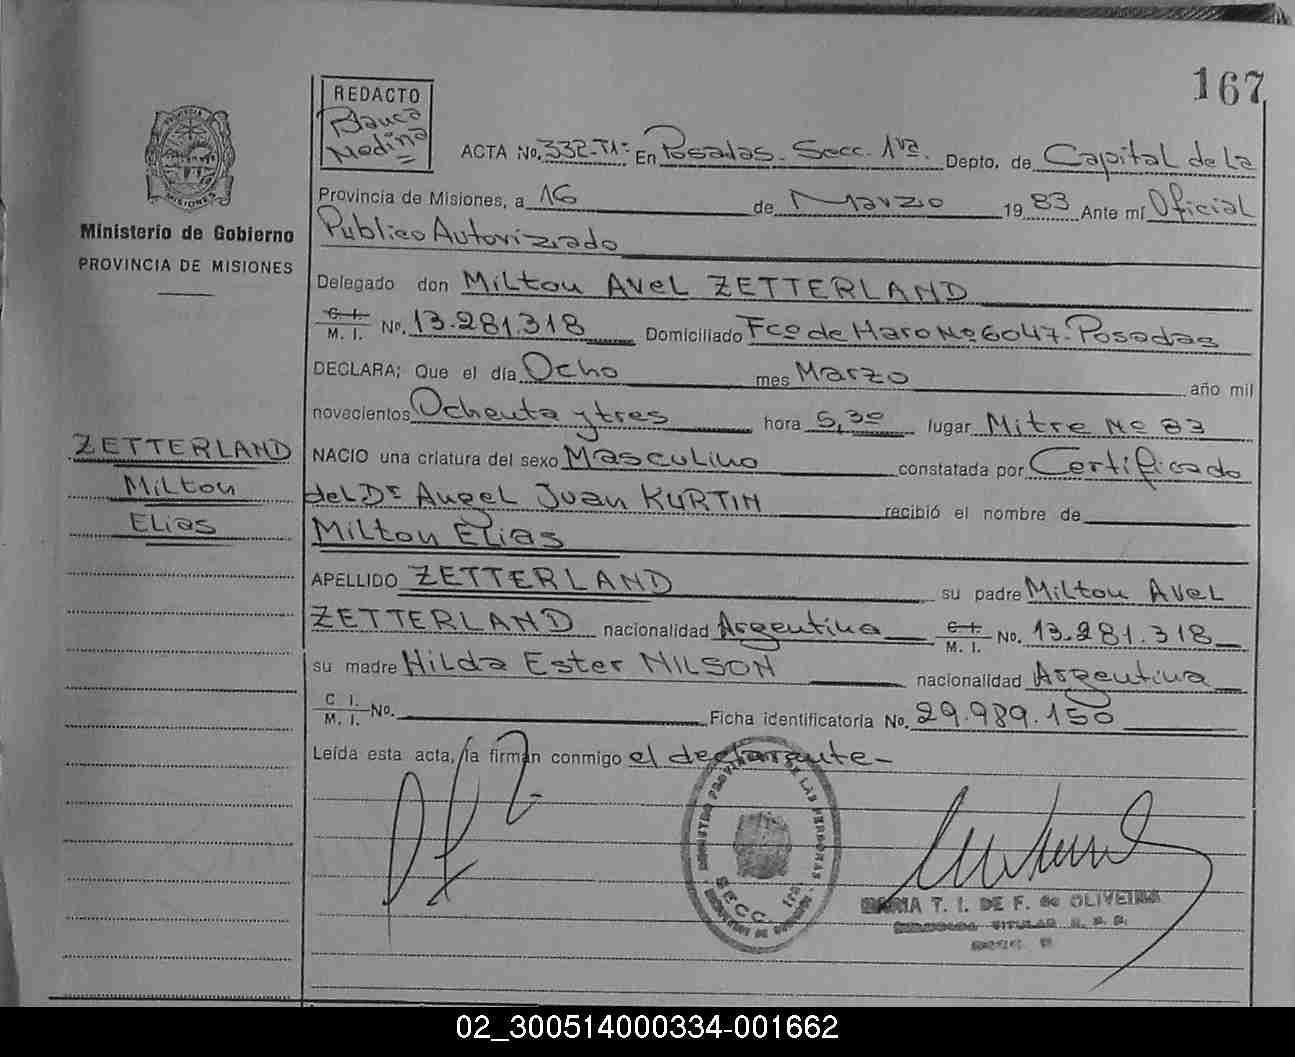 167
REDACTO
Blanca
Medina
ACTA No. 332-T1: En Posadas. Secc. 1ra. Depto. de Capital de la
Provincia de Misiones, a 16 de Marzo 19 83 Ante mí Oficial
Publico Autorizado
Delegado don Milton Avel ZETTERLAND
C. I.
M. I. No. 13.281.318 Domiciliado Fco de Haro Nº 6047-Posadas
DECLARA; Que el día Ocho mes Marzo año mil
novecientos Ochenta y tres hora 5,30 lugar Mitre Nº 83
NACIO una criatura del sexo Masculino constatada por Certificado
del Dr Angel Juan KURTIN recibió el nombre de
Milton Elias
APELLIDO ZETTERLAND su padre Milton Avel
ZETTERLAND nacionalidad Argentina C. I.
M. I. No. 13.281.318
su madre Hilda Ester NILSON nacionalidad Argentina
C. I.
M. I. No. Ficha identificatoria No. 29.989.150
Leída esta acta, la firman conmigo el declarante
Ministerio de Gobierno
PROVINCIA DE MISIONES
ZETTERLAND
Milton
Elias
REGISTRO PROVINCIAL DE LAS PERSONAS
SECC. 1ra.
MARIA T. I. DE F. de OLIVEIRA
TITULAR R. P. P.
02_300514000334-001662